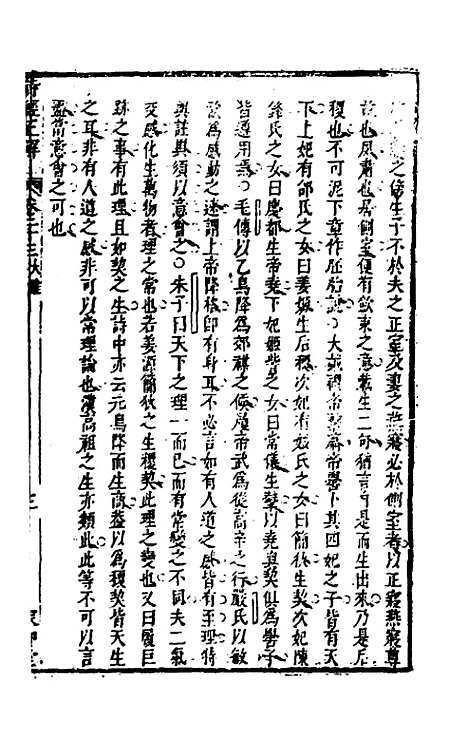 之傍生子不於夫之正室及妻之燕寢必於側室者以正寢燕寢尊
故也夙肅也居側室便有歛束之意載生二句猶言于是而生出來乃是后
稷也不可泥下章作胚胎說○大戴禮帝繫篇帝嚳卜其四妃之子皆有天
下上妃有邰氏之女曰姜嫄生后稷次妃有娀氏之女曰簡狄生契次妃陳
鋒氏之女曰慶都生帝堯下妃娵訾之女曰常儀生摯以堯與契俱爲嚳子
皆遵用焉○毛傳以乙鳥降爲郊禖之候履帝武爲從高辛之行嚴氏以敏
歆爲感動之速謂上帝降格卽有身耳不必言如有人道之感皆有至理特
與註異須以意會之○朱子曰天下之理一而已而有常變之不同夫二氣
交感化生萬物者理之常也若姜源簡狄之生稷契此理之變也又曰履巨
跡之事有此理且如契之生詩中亦云元鳥降而生商葢以爲稷契皆天生
之耳非有人道之感非可以常理論也漢高祖之生亦類此此等不可以言
盡當意會之可也
詩經正解 卷二十三 大雅
三